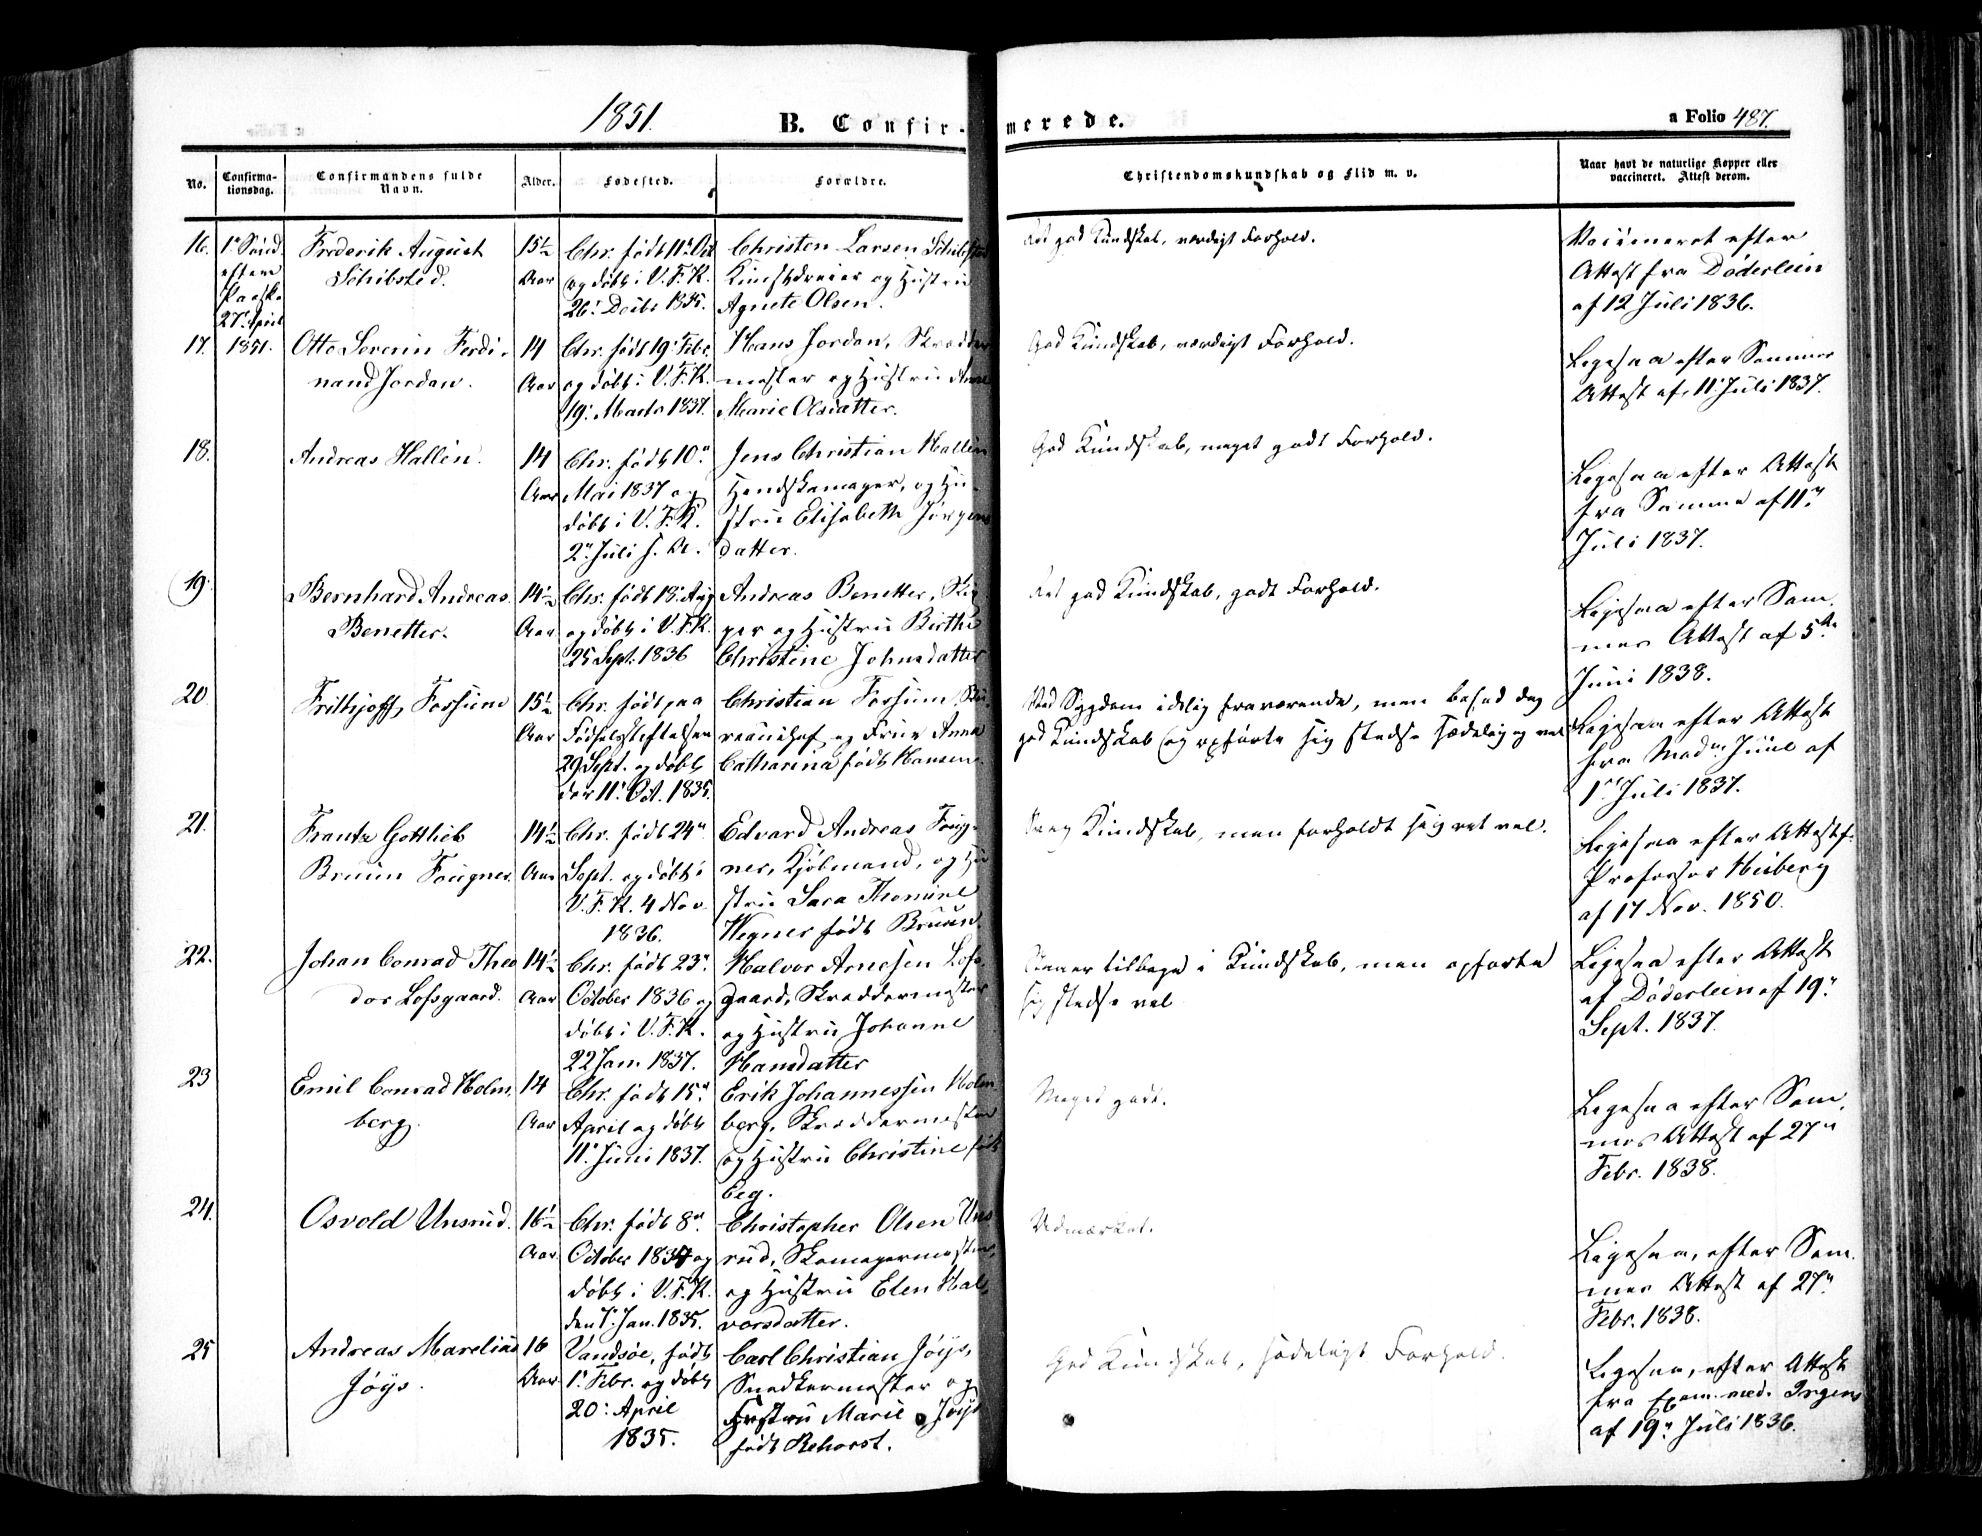 1851.
B. Confirmerede.
a Folio 487.
No.
Confirmationsdag.
Confirmandens fulde Navn.
Alder.
Fødested.
Forældre.
Christendomskundskab og Flid m. v.
Naar havt de naturlige Kopper eller vaccineret. Attest derom.
16.
1e Sønd.
efter
Paaske
27de April
1851.
Frederik August
Schibsted.
15½
Aar
Chr. født 11te Oct
og døbt i V. F. K.
26de Decbr 1835.
Christen Larsen Schibsted
Kunstdreier og Hustru
Agnete Olsen.
Ret god Kundskab, værdigt Forhold.
Vaccineret efter
Attest fra Døderlein
af 12 Juli 1836.
17.
Otto Severin Ferdi-
nand Jordan.
14
Aar
Chr. født 19de Febr.
og døbt i V. F. K.
19de Marts 1837.
Hans Jordan, Skrædder
mester og Hustru Anne
Marie Olsdatter.
God Kundskab, værdigt Forhold.
Ligesaa efter Sammes
Attest af 11 Juli 1837.
18.
Andreas Hallin.
14
Aar
Chr. født 10de
Mai 1837 og
døbt i V. F. K.
2den Juli s. A.
Jens Christian Hallin
Handskemager, og Hu-
stru Elisabeth Jørgens
datter.
God Kundskab, meget godt Forhold.
Ligesaa efter Attest
fra Samme af 11te
Juli 1837.
19.
Bernhard Andreas
Benetter.
14½
Aar
Chr. født 18de Aug
og døbt i V. F. K.
25 Sept. 1836
Andreas Benetter, Skip
per og Hustru Birthe
Christine Johnsdatter
Ret god Kundskab, godt Forhold.
Ligesaa efter Sam-
mes Attest af 5te
Juni 1838.
20
Frithjoff Fossum
15½
Aar
Chr. født paa
Fødselsstiftelsen
29 Sept. og døbt
der 11te Oct. 1835.
Christian Fossum, Bu
reauchef og Frue Anna
Catharina født Hansen.
Ved Sygdom idelig fraværende, men besad dog
god Kundskab og opførte sig stedse sædelig og vel
Ligesaa efter Attest
fra Madm. Juul af
1ste Juli 1837.
21.
Frantz Gottlieb
Bruun Fougner.
14½
Aar
Chr. født 24de
Sept. og døbt i
V. F. K. 4 Nov.
1836.
Edvard Andreas Foug-
ner, Kjøbmand, og Hu
stru Sara Thomine
Wegner født Bruun.
Svag Kundskab, men forholdt sig ret vel.
Ligesaa efter Attest f.
Professor Heiberg
af 17 Nov. 1850.
22.
Johan Conrad Theo
dor Lofsgaard.
14½
Aar
Chr. født 23de
October 1836 og
døbt i V. F. K.
22 Jan. 1837.
Halvor Arnesen Lofs-
gaard, Skræddermester
og Hustru Johanne
Hansdatter
tilbage i Kundskab, men opførte
sig stedse vel
Ligesaa efter Attest
af Døderlein af 19de
Sept. 1837.
23
Emil Conrad Holm-
berg.
14
Aar
Chr. født 15de
April og døbt
11te Juni 1837.
Erik Johannessen Holm
berg, Skræddermester
og Hustru Christine født
Eeg.
Meget godt.
Ligesaa efter Sam-
mes Attest af 27de
Febr. 1838.
24.
Osvold Unsrud.
16½
Aar
Chr. født 8de
October 1834 og
døbt i V. F. K.
den 1ste Jan. 1835.
Christopher Olsen Uns
rud, Skomagermester,
og Hustru Elen Hal-
vorsdatter.
Udmærket.
Ligesaa, efter Sam-
mes Attest af 27de
Febr. 1838.
25
Andreas Marelius
Jøys.
16
Aar
Vandsøe, født
1ste Febr. og døbt
20de April
1835.
Carl Christian Jøys,
Snedkermester og
Hustru Marie Jøys
født Rehorst.
God Kundskab, sædeligt Forhold.
Ligesaa, efter Attest
fra Exam. med. Irgens
af 19de Juli 1836.